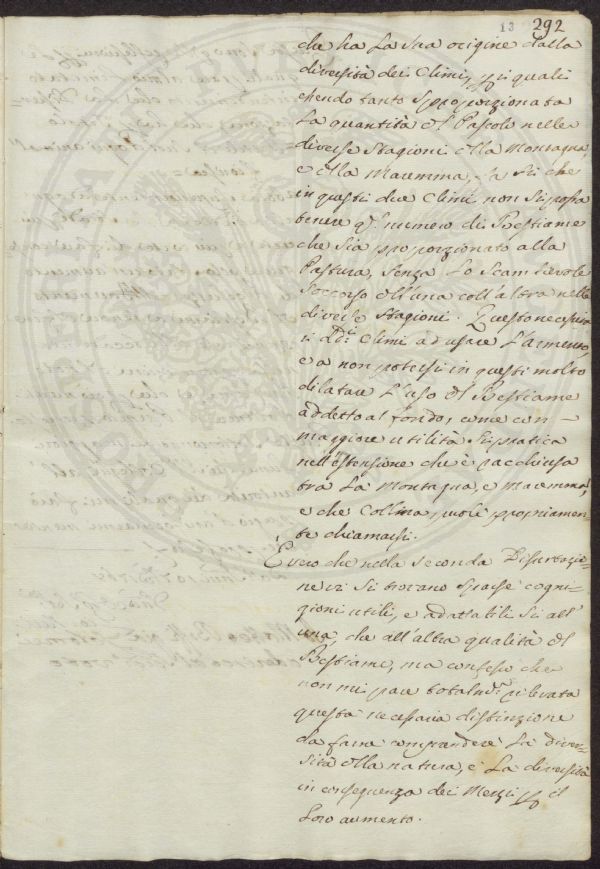 13 292
che ha La sua origine dalla
diversità dei Climi, p i quali
essendo tanto sproporzionata
La quantità dl Pascolo nelle
diverse Stagioni alla Montagna,
e alla Maremma, fa sì che
in questi due Climi non si possa
tenere q.l numero di Bestiame
che sia proporzionato alla
Pastura, senza Lo scambievole
soccorso dll'una coll'altra nelle
diverse Stagioni. Questo necessita
i dd.i Climi ad usare L'armento,
e a non potersi in questi molto
dilatare L'uso dl Bestiame
addetto al fondo, come con
maggiore utilità si pratica
nell'estensione che è racchiusa
tra La Montagna, e Maremma,
e che Collina suole propriamen-
te chiamarsi.
È vero che nella seconda Dissertazio-
ne vi si trovano sparse cogni-
zioni utili, e adattabili sì all'
una, che all'altra qualità dl
Bestiame, ma confesso che
non mi pare totalm.te rilevata
questa necessaria distinzione
da farne comprendere La diver-
sità dlla natura, e La diversità
in conseguenza dei Mezzi p il
Loro aumento.